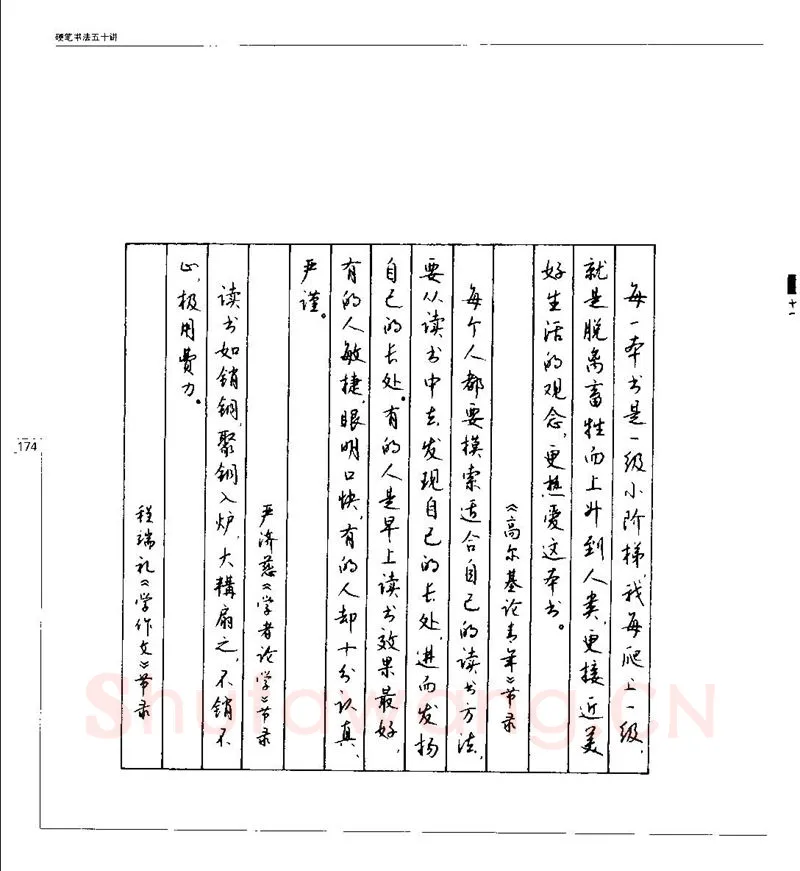 硬笔书法五十讲
每一本书是一级小阶梯,我每爬上一级,
就是脱离畜牲而上升到人类,更接近美
好生活的观念,更热爱这本书。
《高尔基论青年》节录
每个人都要摸索适合自己的读书方法,
要从读书中去发现自己的长处,进而发扬
自己的长处。有的人是早上读书效果最好,
有的人敏捷,眼明口快,有的人却十分认真、
严谨。
严济慈《学者论学》节录
读书如销铜,聚铜入炉,大鞴扇之,不销不
止,极用费力。
程端礼《学作文》节录
174
十一
Shufawang.CN